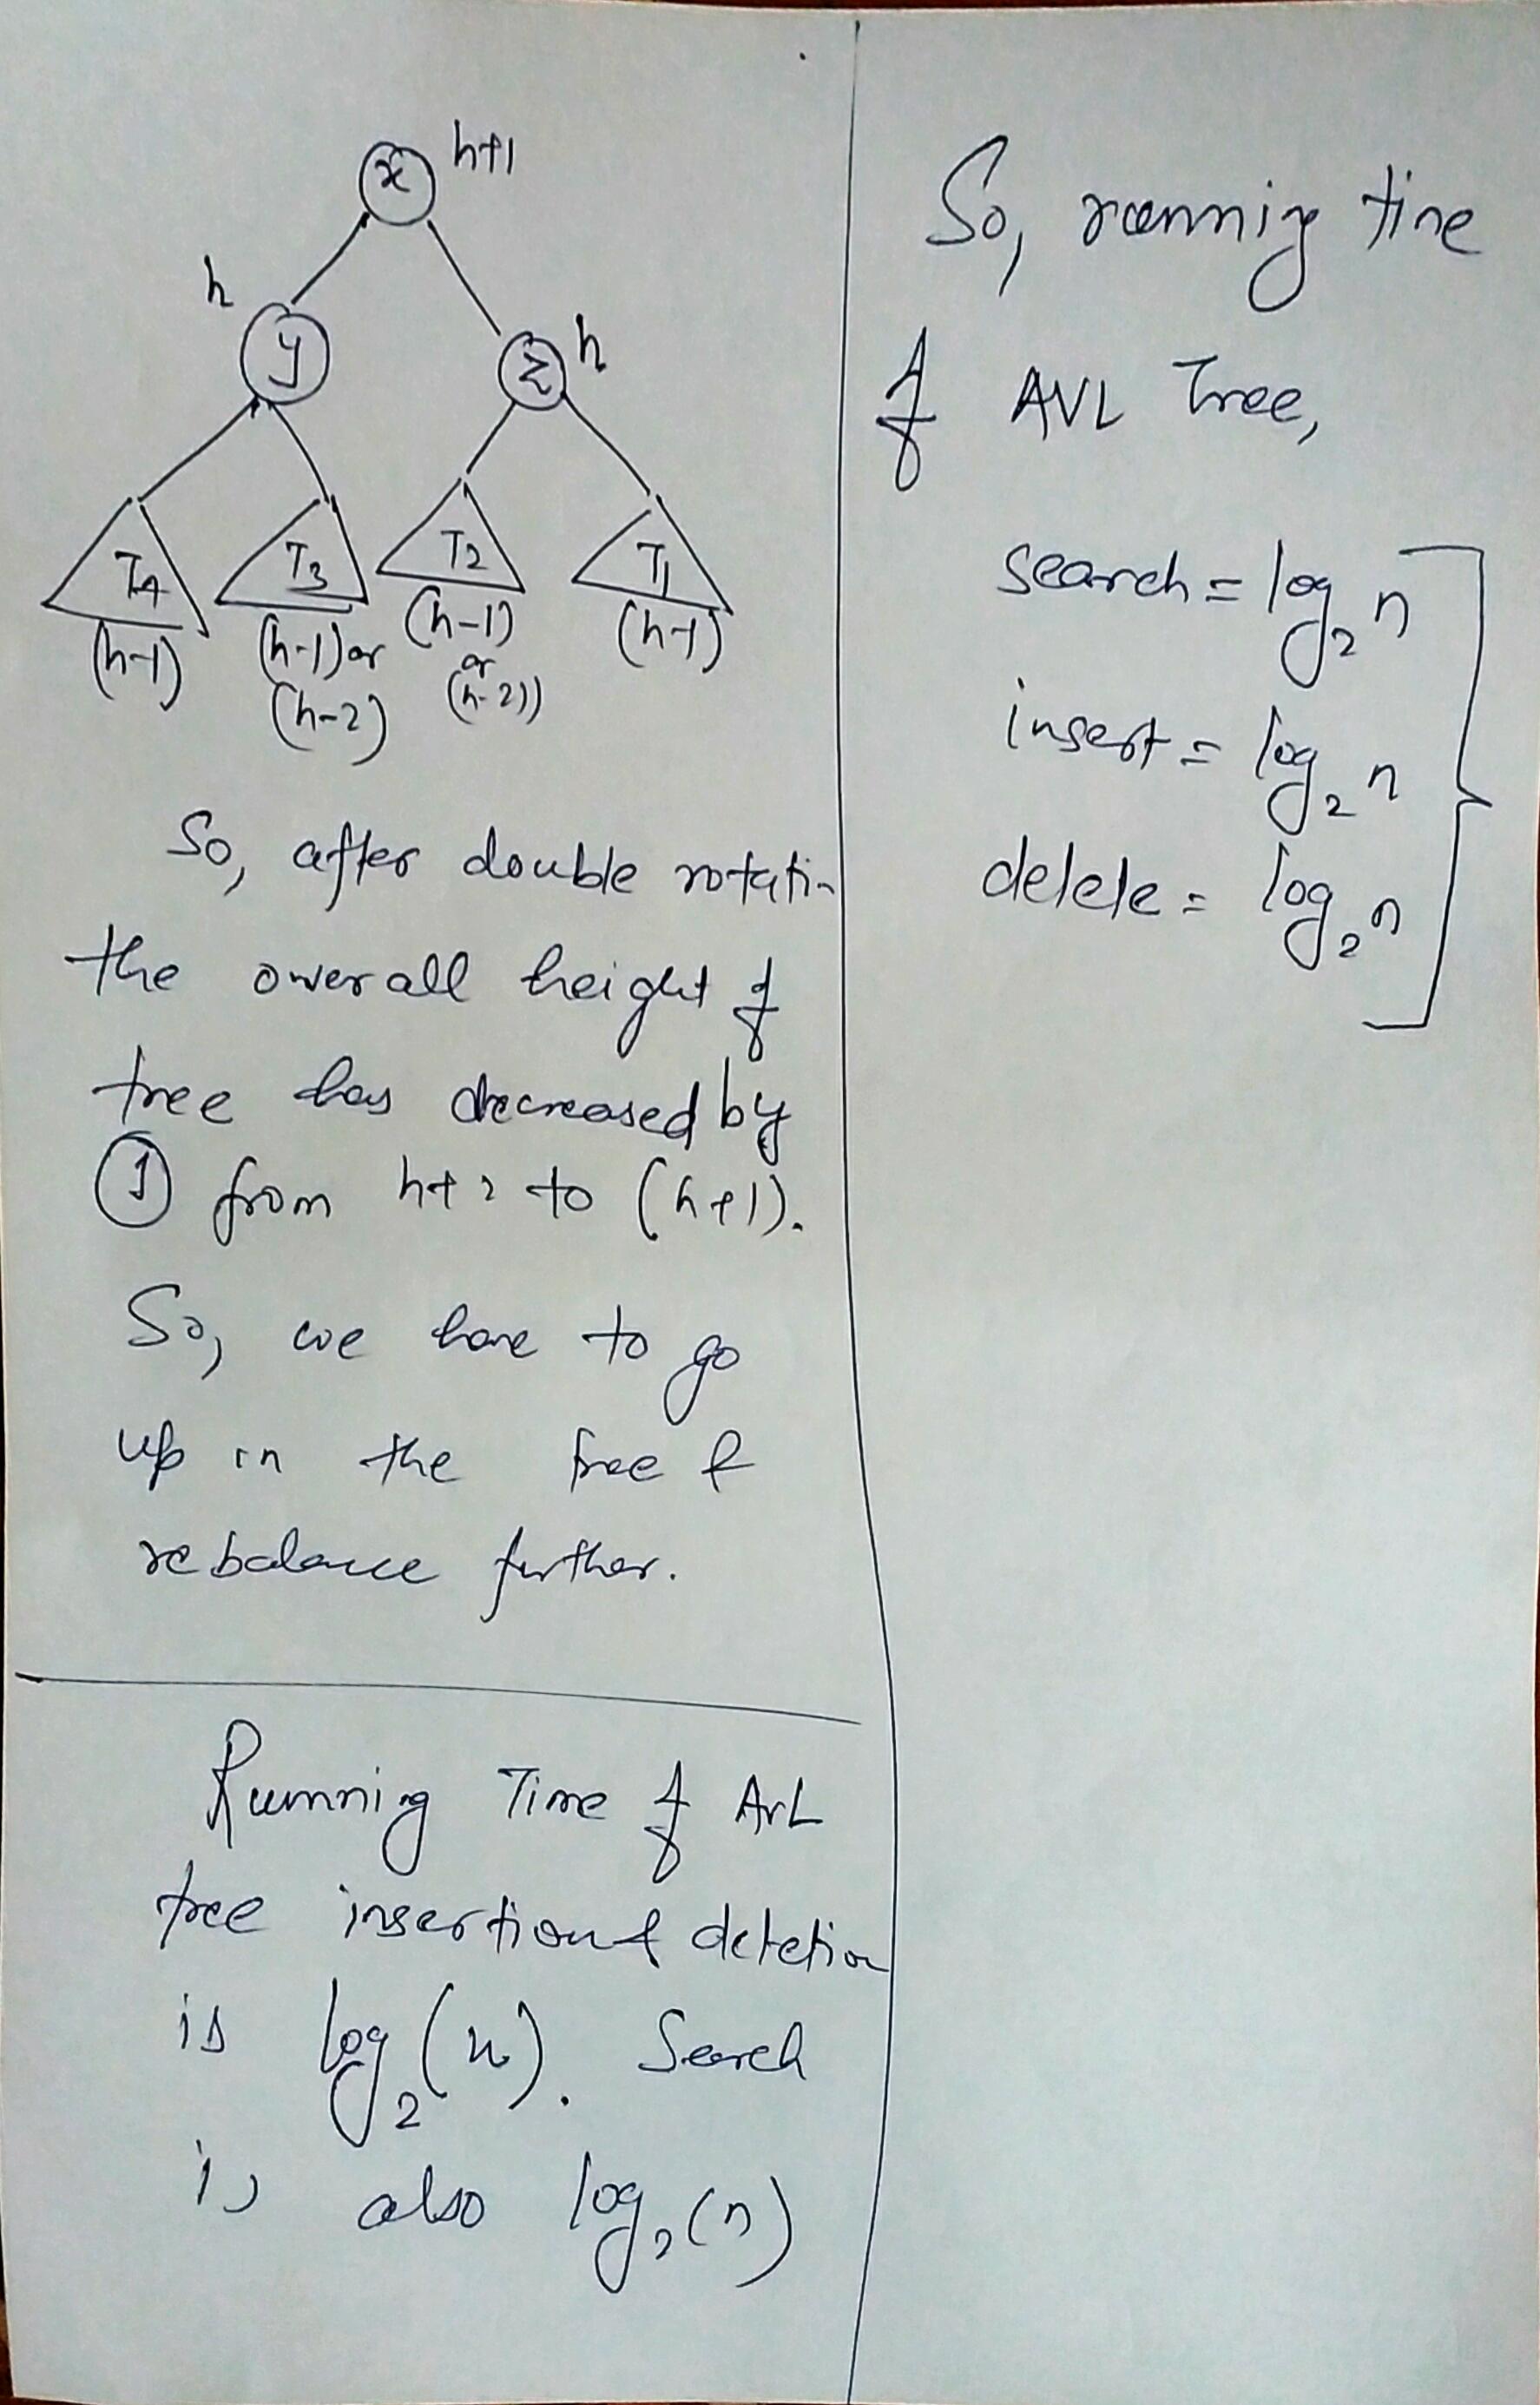 x h+1
h
y
z h
T4 T3 T2 T1
(h-1) (h-1) or (h-1) (h-1)
(h-2) or
(h-2))
So, after double rotatin
the overall height of
tree has decreased by
① from h+2 to (h+1).
So, we have to go
up in the tree &
rebalance further.
Running Time of AVL
tree insertion & deletion
is log₂(n). Search
is also log₂(n)
So, running time
of AVL Tree,
search = log₂ n
insert = log₂ n
delete = log₂ n